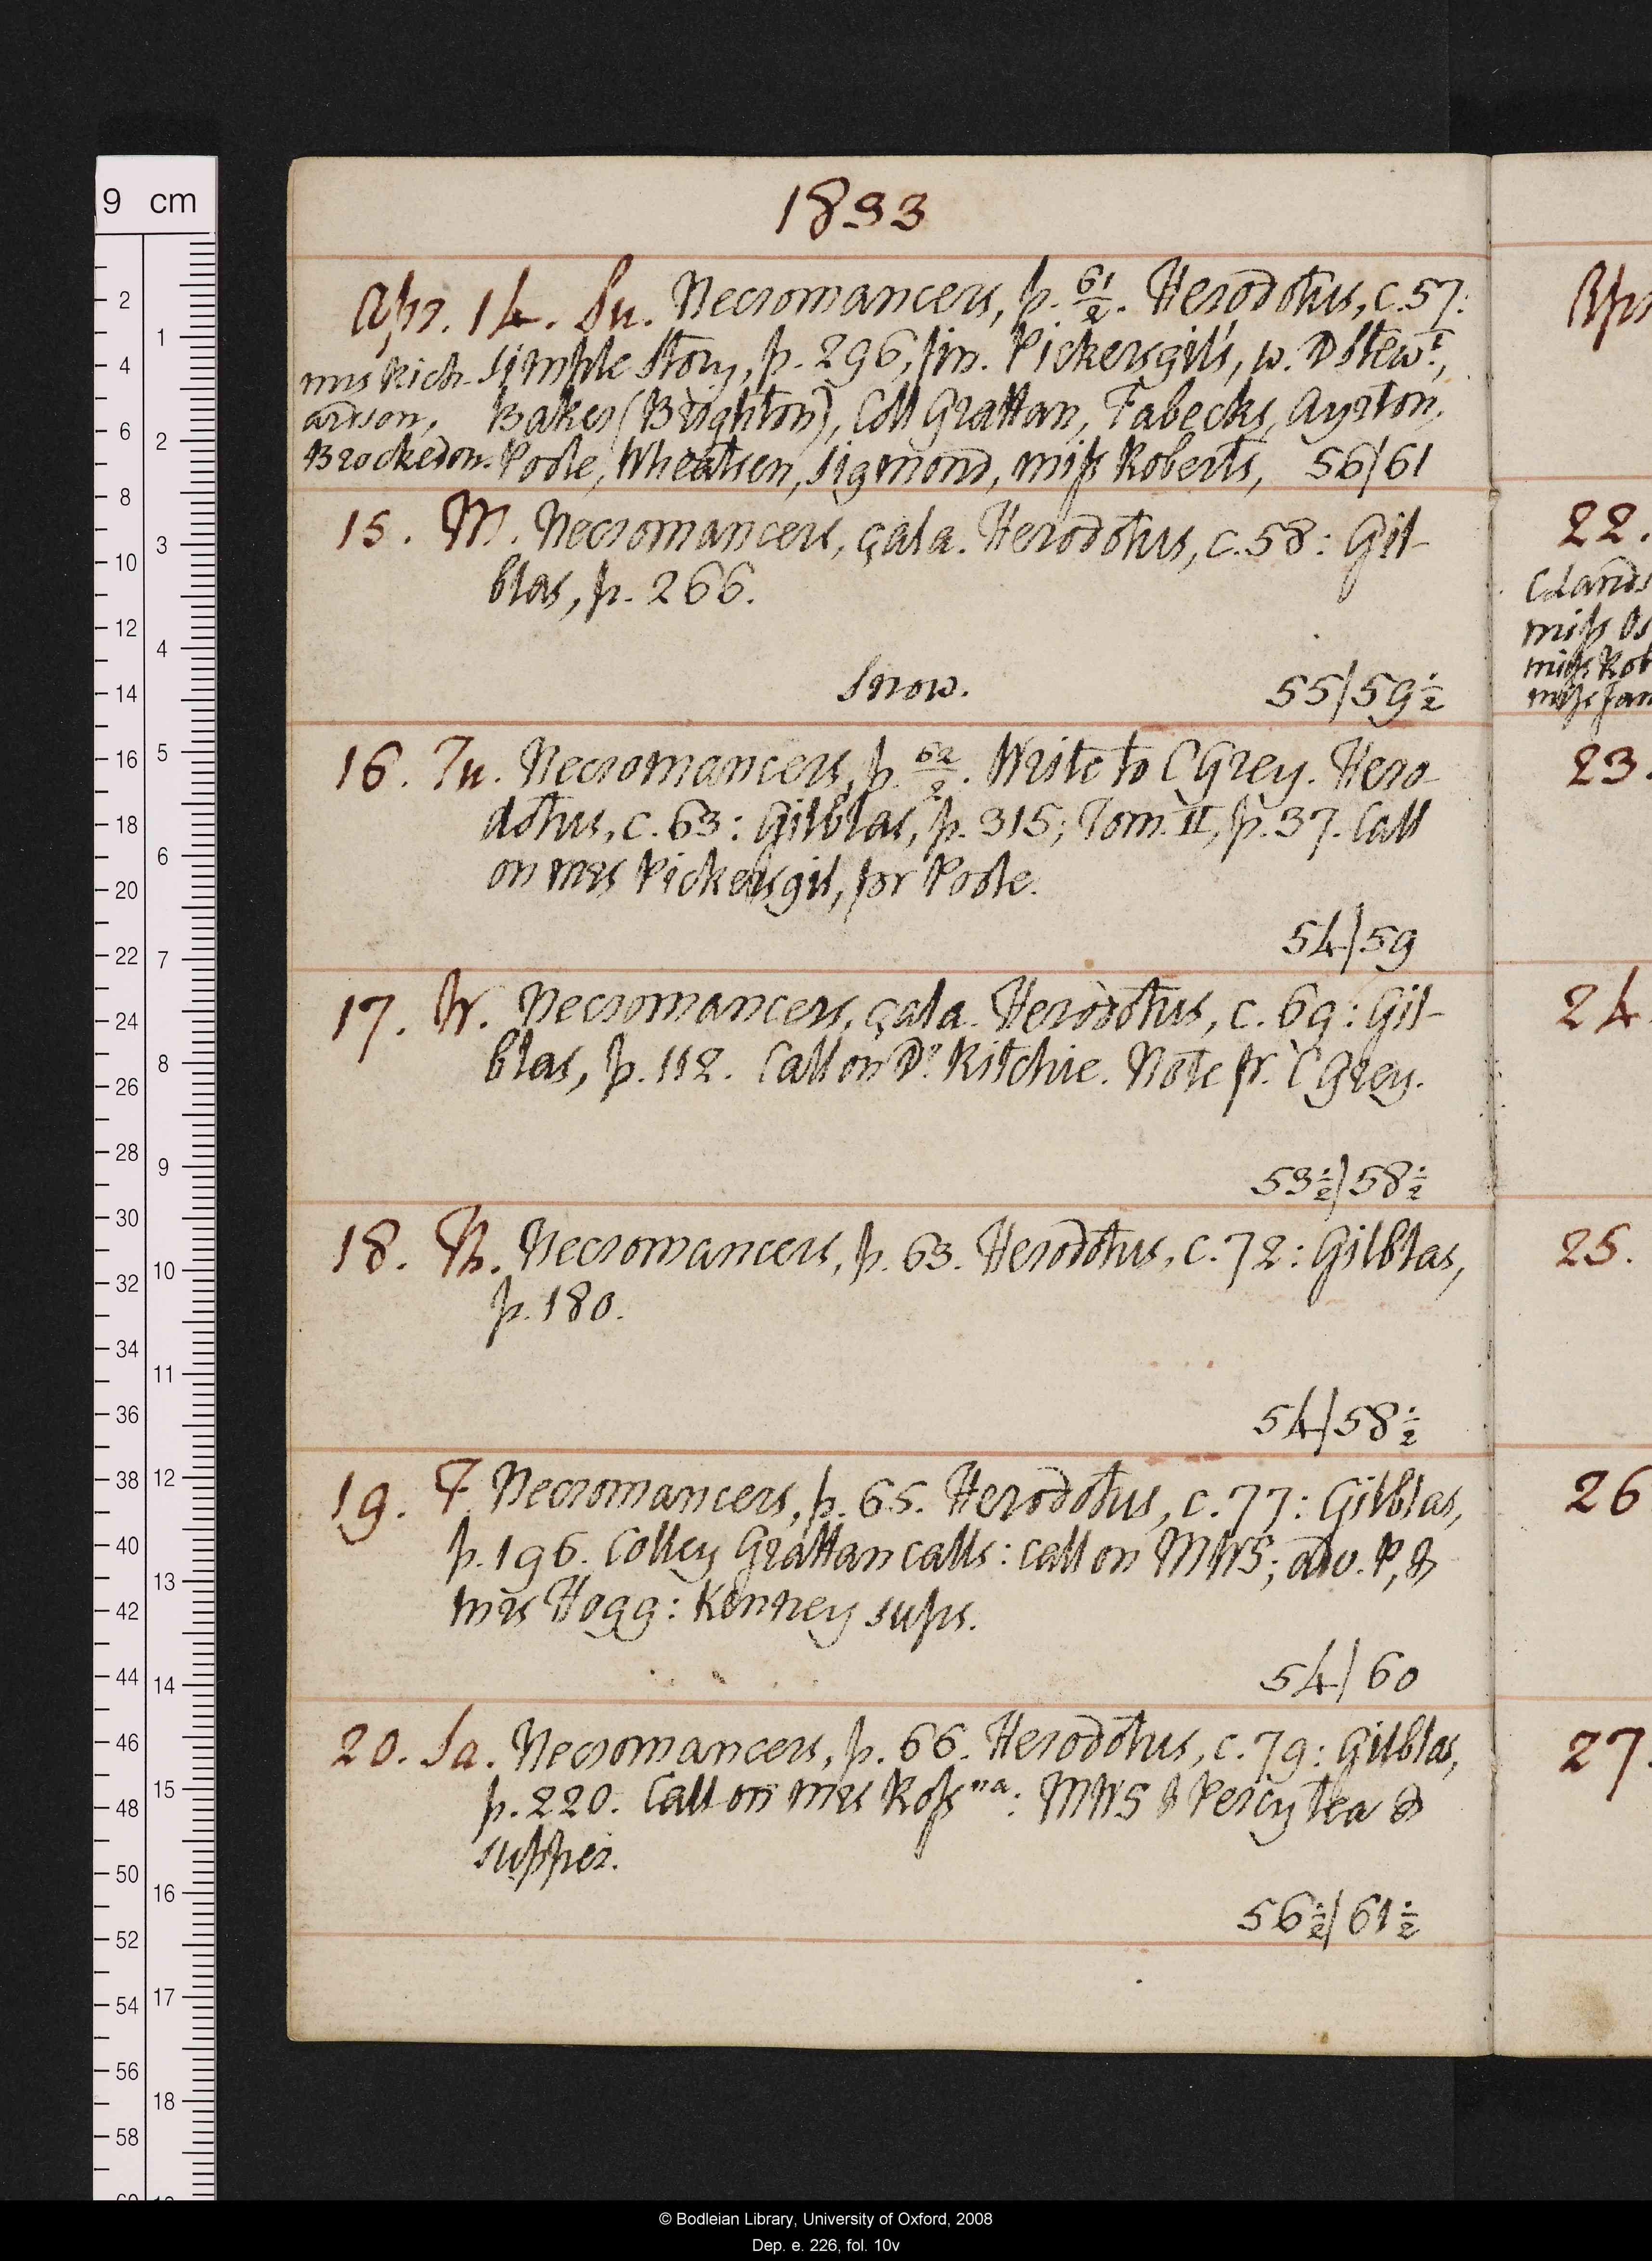 1833
Apr. 14. Su. Necromancers, p. 61/2. Herodotus, c. 57:
Simple Story, p. 296, fin. Pickersgil's, w. D Stewt,
Baker (Brighton), Coll Grattan, Fabecks, Ayrton,
Poole, Wheatson, Sigmond, miss Roberts, 56/61
mrs Rich-
ardson,
Brockedon.
15. M. Necromancers, çala. Herodotus, c. 58: Gil-
blas, p. 266.
Snow. 55/59½
16. Tu. Necromancers, p. 62/2. Write to C Grey. Hero-
dotus, c. 63: Gilblas, p. 315; Tom. II, p. 37. Call
on mrs Pickersgil, for Poole.
54/59
17. W. Necromancers, çala. Herodotus, c. 69: Gil-
blas, p. 112. Call on Dr Ritchie. Note fr. C Grey.
53½/58½
18. Th. Necromancers, p. 63. Herodotus, c. 72: Gilblas,
p. 180.
54/58½
19. F. Necromancers, p. 65. Herodotus, c. 77: Gilblas,
p. 196. Colley Grattan calls: call on MWS; adv. P, &
mrs Hogg: Kenney sups.
54/60
20. Sa. Necromancers, p. 66. Herodotus, c. 79: Gilblas,
p. 220. Call on mrs Ross na: MWS & Percy tea &
supper.
56½/61½
22.
miss
23.
24
25.
26
27.
9 cm
2 4 6 8 10 12 14 16 18 20 22 24 26 28 30 32 34 36 38 40 42 44 46 48 50 52 54 56 58
1 2 3 4 5 6 7 8 9 10 11 12 13 14 15 16 17 18
© Bodleian Library, University of Oxford, 2008
Dep. e. 226, fol. 10v